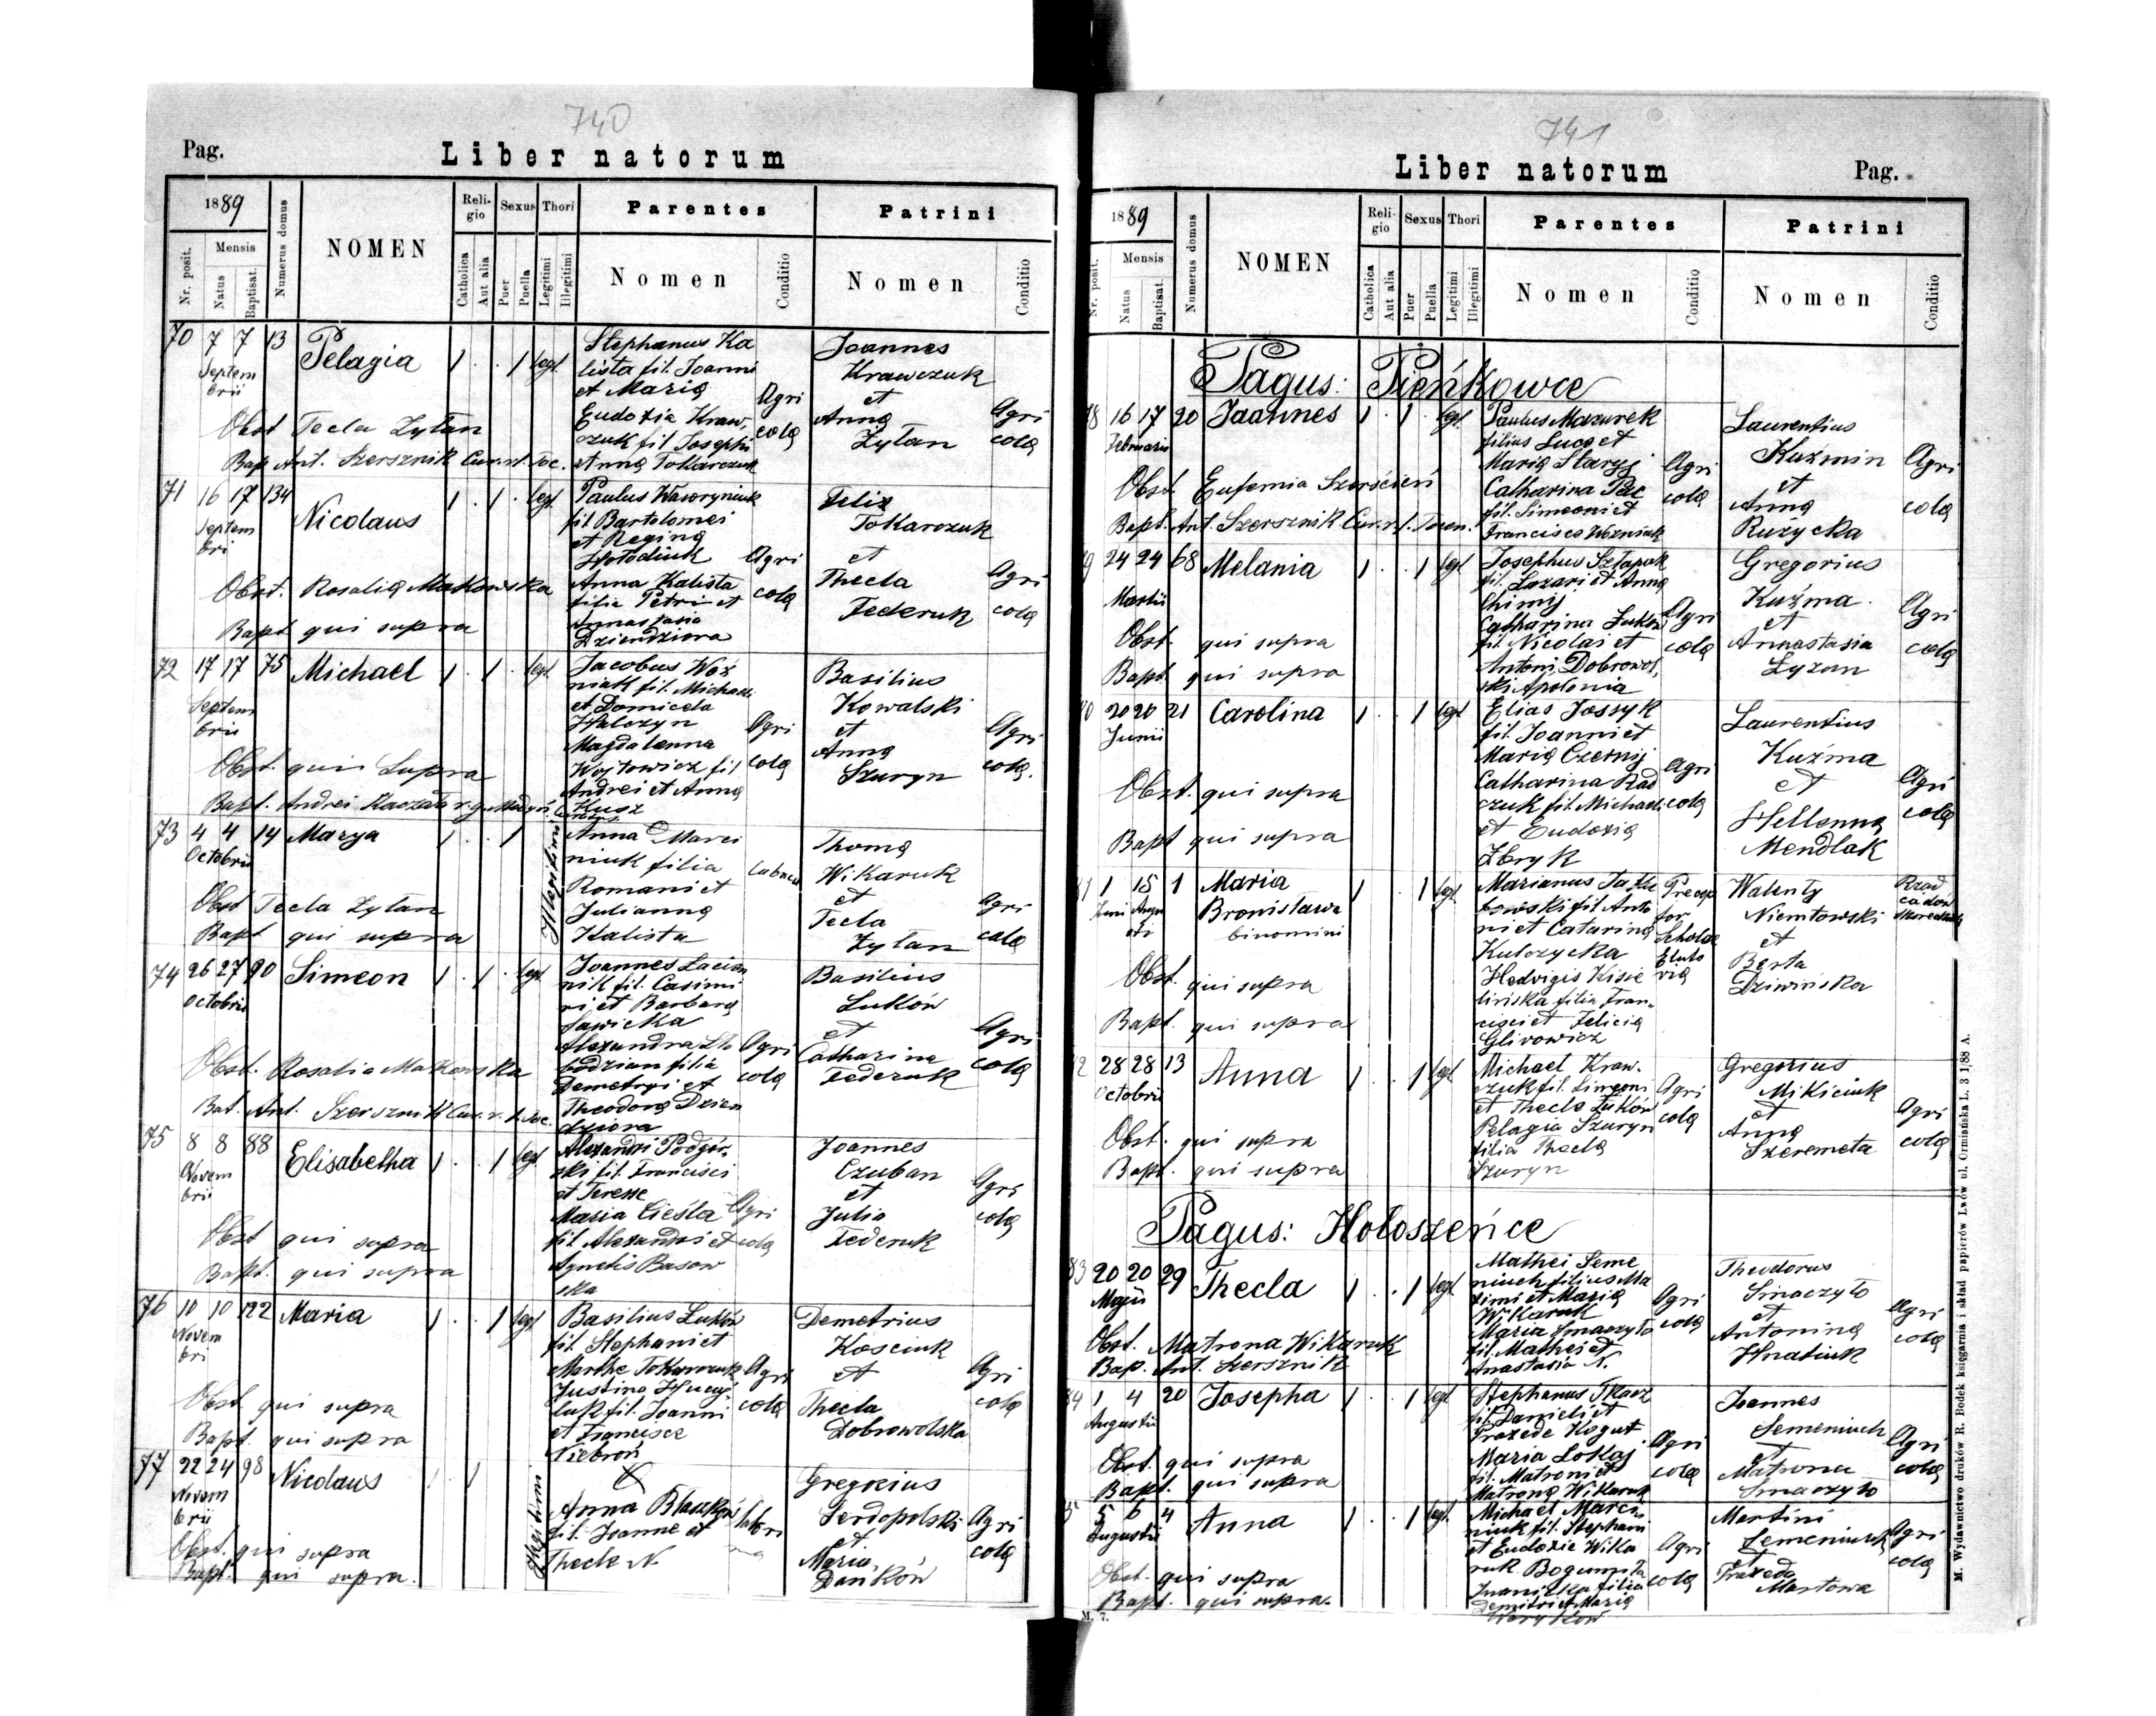 740
Pag.
Liber natorum
1889
Nr. posit.
Mensis
Natus
Baptisat.
Numerus domus
NOMEN
Religio
Catholica
Aut alia
Sexus
Puer
Puella
Thori
Legitimi
Illegitimi
Parentes
Nomen
Conditio
Patrini
Nomen
Conditio
70 7 7 13 Pelagia 1 . . 1 legt.
Septem
brii
Stephanus Ka
lista fil. Joanni
et Marią
Eudoxia Kraw,
czuk fil Josephi
et Anną Tokarczuk
Agri
colą
Joannes
Krawczuk
et
Anną
Zytan
Agri
colą
Obst Tecla Zytan
Bap Ant. Szersznik Cur. r. l. Toc.
71 16 17 134 Nicolaus 1 . 1 . legt.
Septem
bri
Paulus Waworyniuk
fil Bartolomei
et Reginą
Hołodiuk
Anna Kalista
filia Petri et
Annastasia
Dziendziora
Agri
colą
Felix
Tokarczuk
et
Thecla
Federuk
Agri
colą
Obst. Rosalią Makowska
Bapt qui supra
72 17 17 75 Michael 1 . 1 . legt.
Septem
brii
Jacobus Woź
niak fil. Michaeli
et Domicela
Halczyn
Magdalenna
Wojtowicz fil
Andrei et Anną
Kusz
Agri
colą
Basilius
Kowalski
et
Anną
Szuryn
Agri
colą.
Obst. qui Supra
Bapt. Andrei Kaczała
73 4 4 14 Marya 1 . . 1 Illegitimi
Octobrii
Anna Marci
niuk filia
Romani et
Julianną
Kalista
Thomą
Wikaruk
et
Tecla
Zytan
Agri
colą
Obst Tecla Zytan
Bapt qui supra
74 26 27 90 Simeon 1 . 1 . legt
Octobrii
Joannes Lacian
nik fil. Casimi
ri et Barbarą
Sawicka
Alexandra Sło
bodzian filia
Demetryi et
Theodorą Dzien
dziora
Agri
colą
Basilius
Luków
et
Catharina
Federuk
Agri
colą
Obst. Rosalia Makowska
Bat. Ant. Szersznik Cur. r. l. Toc.
75 8 8 88 Elisabetha 1 . . 1 legt
Novem
brii
Alexandri Podgór
ski fil. Francisci
et Teresse
Maria Cieśla
fil. Alexandri et
Agnetis Basow
ska
Agri
colą
Joannes
Czuban
et
Julia
Federuk
Agri
colą
Obst qui supra
Bapt. qui supra
76 10 10 122 Maria 1 . . 1 legt
Novem
bri
Basilius Luków
fil. Stephani et
Marthe Tokarczuk
Justina Hucu
luk fil. Joanni
et Francisce
Niebroń
Agri
colą
Demetrius
Kosciuk
et
Thecla
Dobrowolska
Agri
colą
Obst qui supra
Bapt. qui supra
77 22 24 98 Nicolaus 1 1 Illegitimi
Novem
brii
Anna
fil. Joanne et
Thecle N.
Gregorius
Serdopolski
et
Maria
Dańków
Agri
colą
Obst. qui supra
Bapt. qui supra.
741
Liber natorum
Pag.
1889
Nr. posit.
Mensis
Natus
Baptisat.
Numerus domus
NOMEN
Religio
Catholica
Aut alia
Sexus
Puer
Puella
Thori
Legitimi
Illegitimi
Parentes
Nomen
Conditio
Patrini
Nomen
Conditio
Pagus: Pieńkowce
78 16 17 20 Joannes 1 . 1 . legt.
Februarii
Paulus Mazurek
filius Lucą et
Marią Staryj
Catharina Pac
fil. Simeoni et
Francisca Wozniak
Agri
colą
Laurentius
Kuźmin
et
Anną
Rużycka
Agri
colą
Obst Eufemia Szerścień
Bapt. Ant. Szersznik Cur. r. l.
9 24 24 68 Melania 1 . . 1 legt
Martii
Josephus Sztapok
fil. Lazari et Anną
Chimij
Catharina Luków
fil. Nicolai et
Antoni Dobrowol,
ski Apolonia
Agri
colą
Gregorius
Kuźma
et
Annastasia
Zyzan
Agri
colą
Obst. qui supra
Bapt. qui supra
0 20 20 21 Carolina 1 . . 1 legt
Junii
Elias Jossyk
fil. Joanni et
Marią Czernij
Catharina Rad
czuk fil. Michaeli
et Eudoxią
Zbryk
Agri
colą
Laurentius
Kuźma
et
Hellenną
Mendlak
Agri
colą
Obst. qui supra
Bapt qui supra
1 1 15 1 Maria 1 . . 1 legt
Bronisława
binomini
fil. Anto
ni et Catariną
Kulczycka
Hedvigis Kisie
lińska filia Fran,
cisci et Felicią
Glivowicz
Precep
tor
Scholae
Walenty
Niemtowski
et
Berta
Dziwińska
Obst. qui supra
Bapt. qui supra
2 28 28 13 Anna 1 . . 1 legt
Octobrii
Michael Kraw.
czuk fil. Simeoni
et Thecle Luków
Pelagia Szuryn
filia Theclą
Szuryn
Agri
colą
Gregorius
Mikiciuk
et
Anną
Szeremeta
Agri
colą
Obst. qui supra
Bapt. qui supra
Pagus: Hołoszeńce
83 20 20 29 Thecla 1 . . 1 legt
Maji
Mathei Seme
niuch filius Ma
ximi et Marią
Wikaruk
Maria Smaczyło
fil. Mathei et
Anastasia N.
Agri
colą
Theodorus
Smaczyło
et
Antoniną
Hnatiuk
Agri
colą
Obst. Matrona Wikaruk
Bap. Ant. Szersznik
84 1 4 20 Josepha 1 . . 1 legt
Augustii
Stephanus Tkacz
fil. Danieli et
Praxede Kogut
Maria Lokaj
fil. Matroni et
Matroną Wikaruk
Agri
colą
Joannes
Semeniuch
et
Matrona
Smaczyło
Agri
colą
Obst. qui supra
Bapt. qui supra
5 5 6 4 Anna 1 . . 1 legt.
Augustii
Michael Marci
niuk fil. Stephani
et Eudoxie Wika
ruk. Bogumiła
filia
Demitri et Marią
Agri
colą
Martini
Semeniuch
et
Praxeda
Martowa
Agri
colą
Obst. qui supra
Bapt. qui supra.
M. 7.
M. Wydawnictwo druków R. Bodek księgarnia i skład papierów Lwów ul. Ormiańska L. 3 1/88 A.